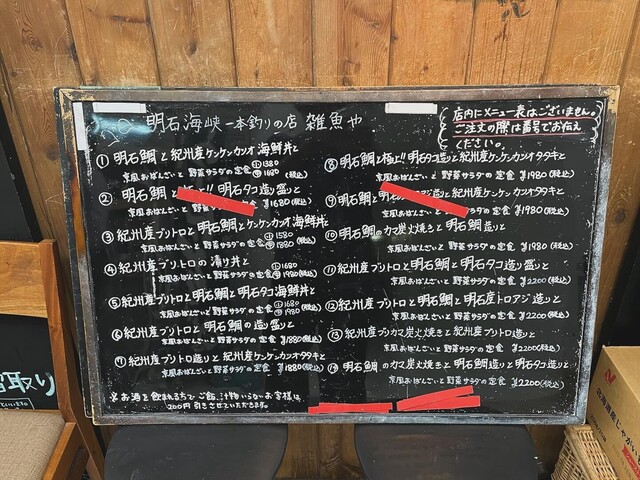 明石海峡一本釣りの店 雑魚や
店内にメニュー表はございません。
ご注文の際は番号でお伝え
ください。
① 明石鯛と紀州産ケンケンカツオ海鮮丼と
京風おばんざいと野菜サラダの定食 ㊤1580 ㊥1680 (税込)
② 明石鯛と 明石タコ造り盛りと
京風おばんざいと サラダの定食 ¥1680(税込)
③ 紀州産ブリトロと明石鯛とケンケンカツオ海鮮丼と
京風おばんざいと野菜サラダの定食 1580 1880 (税込)
④ 紀州産ブリトロの漬け丼と
京風おばんざいと野菜サラダの定食 1680 1980 (税込)
⑤ 紀州産ブリトロと明石鯛と明石タコ海鮮丼と
京風おばんざいと野菜サラダの定食 1680 1980 (税込)
⑥ 紀州産ブリトロと明石鯛の造り盛りと
京風おばんざいと野菜サラダの定食 ¥1880(税込)
⑦ 紀州産ブリトロ造りと紀州産ケンケンカツオタタキと
京風おばんざいと野菜サラダの定食 ¥1880(税込)
※お酒を飲まれる方で ご飯、汁物いらないお客様は
200円引きさせていただきます。
⑧ 明石鯛と極上!!明石タコ造りと紀州産ケンケンカツオタタキと
京風おばんざいと野菜サラダの定食 ¥1980(税込)
⑨ 明石鯛と 造りと紀州産ケンケンカツオタタキと
京風おばんざいと サラダの定食 ¥1980(税込)
⑩ 明石鯛のカマ炭火焼きと明石鯛造りと
京風おばんざいと野菜サラダの定食 ¥1980(税込)
⑪ 紀州産ブリトロと明石鯛と明石タコ造り盛りと
京風おばんざいと野菜サラダの定食 ¥2200(税込)
⑫ 紀州産ブリトロと明石鯛と明石産トロアジ造りと
京風おばんざいと野菜サラダの定食 ¥2200(税込)
⑬ 紀州産ブリカマ炭火焼きと紀州産ブリトロ造りと
京風おばんざいと野菜サラダの定食 ¥2200(税込)
⑭ 明石鯛のカマ炭火焼きと明石鯛造りと明石タコ造りと
京風おばんざいと野菜サラダの定食 ¥2200(税込)
取り
北海道産じゃがい